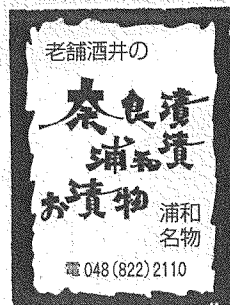 老舗酒井の
奈良漬
浦和漬
お漬物
浦和
名物
電048(822)2110